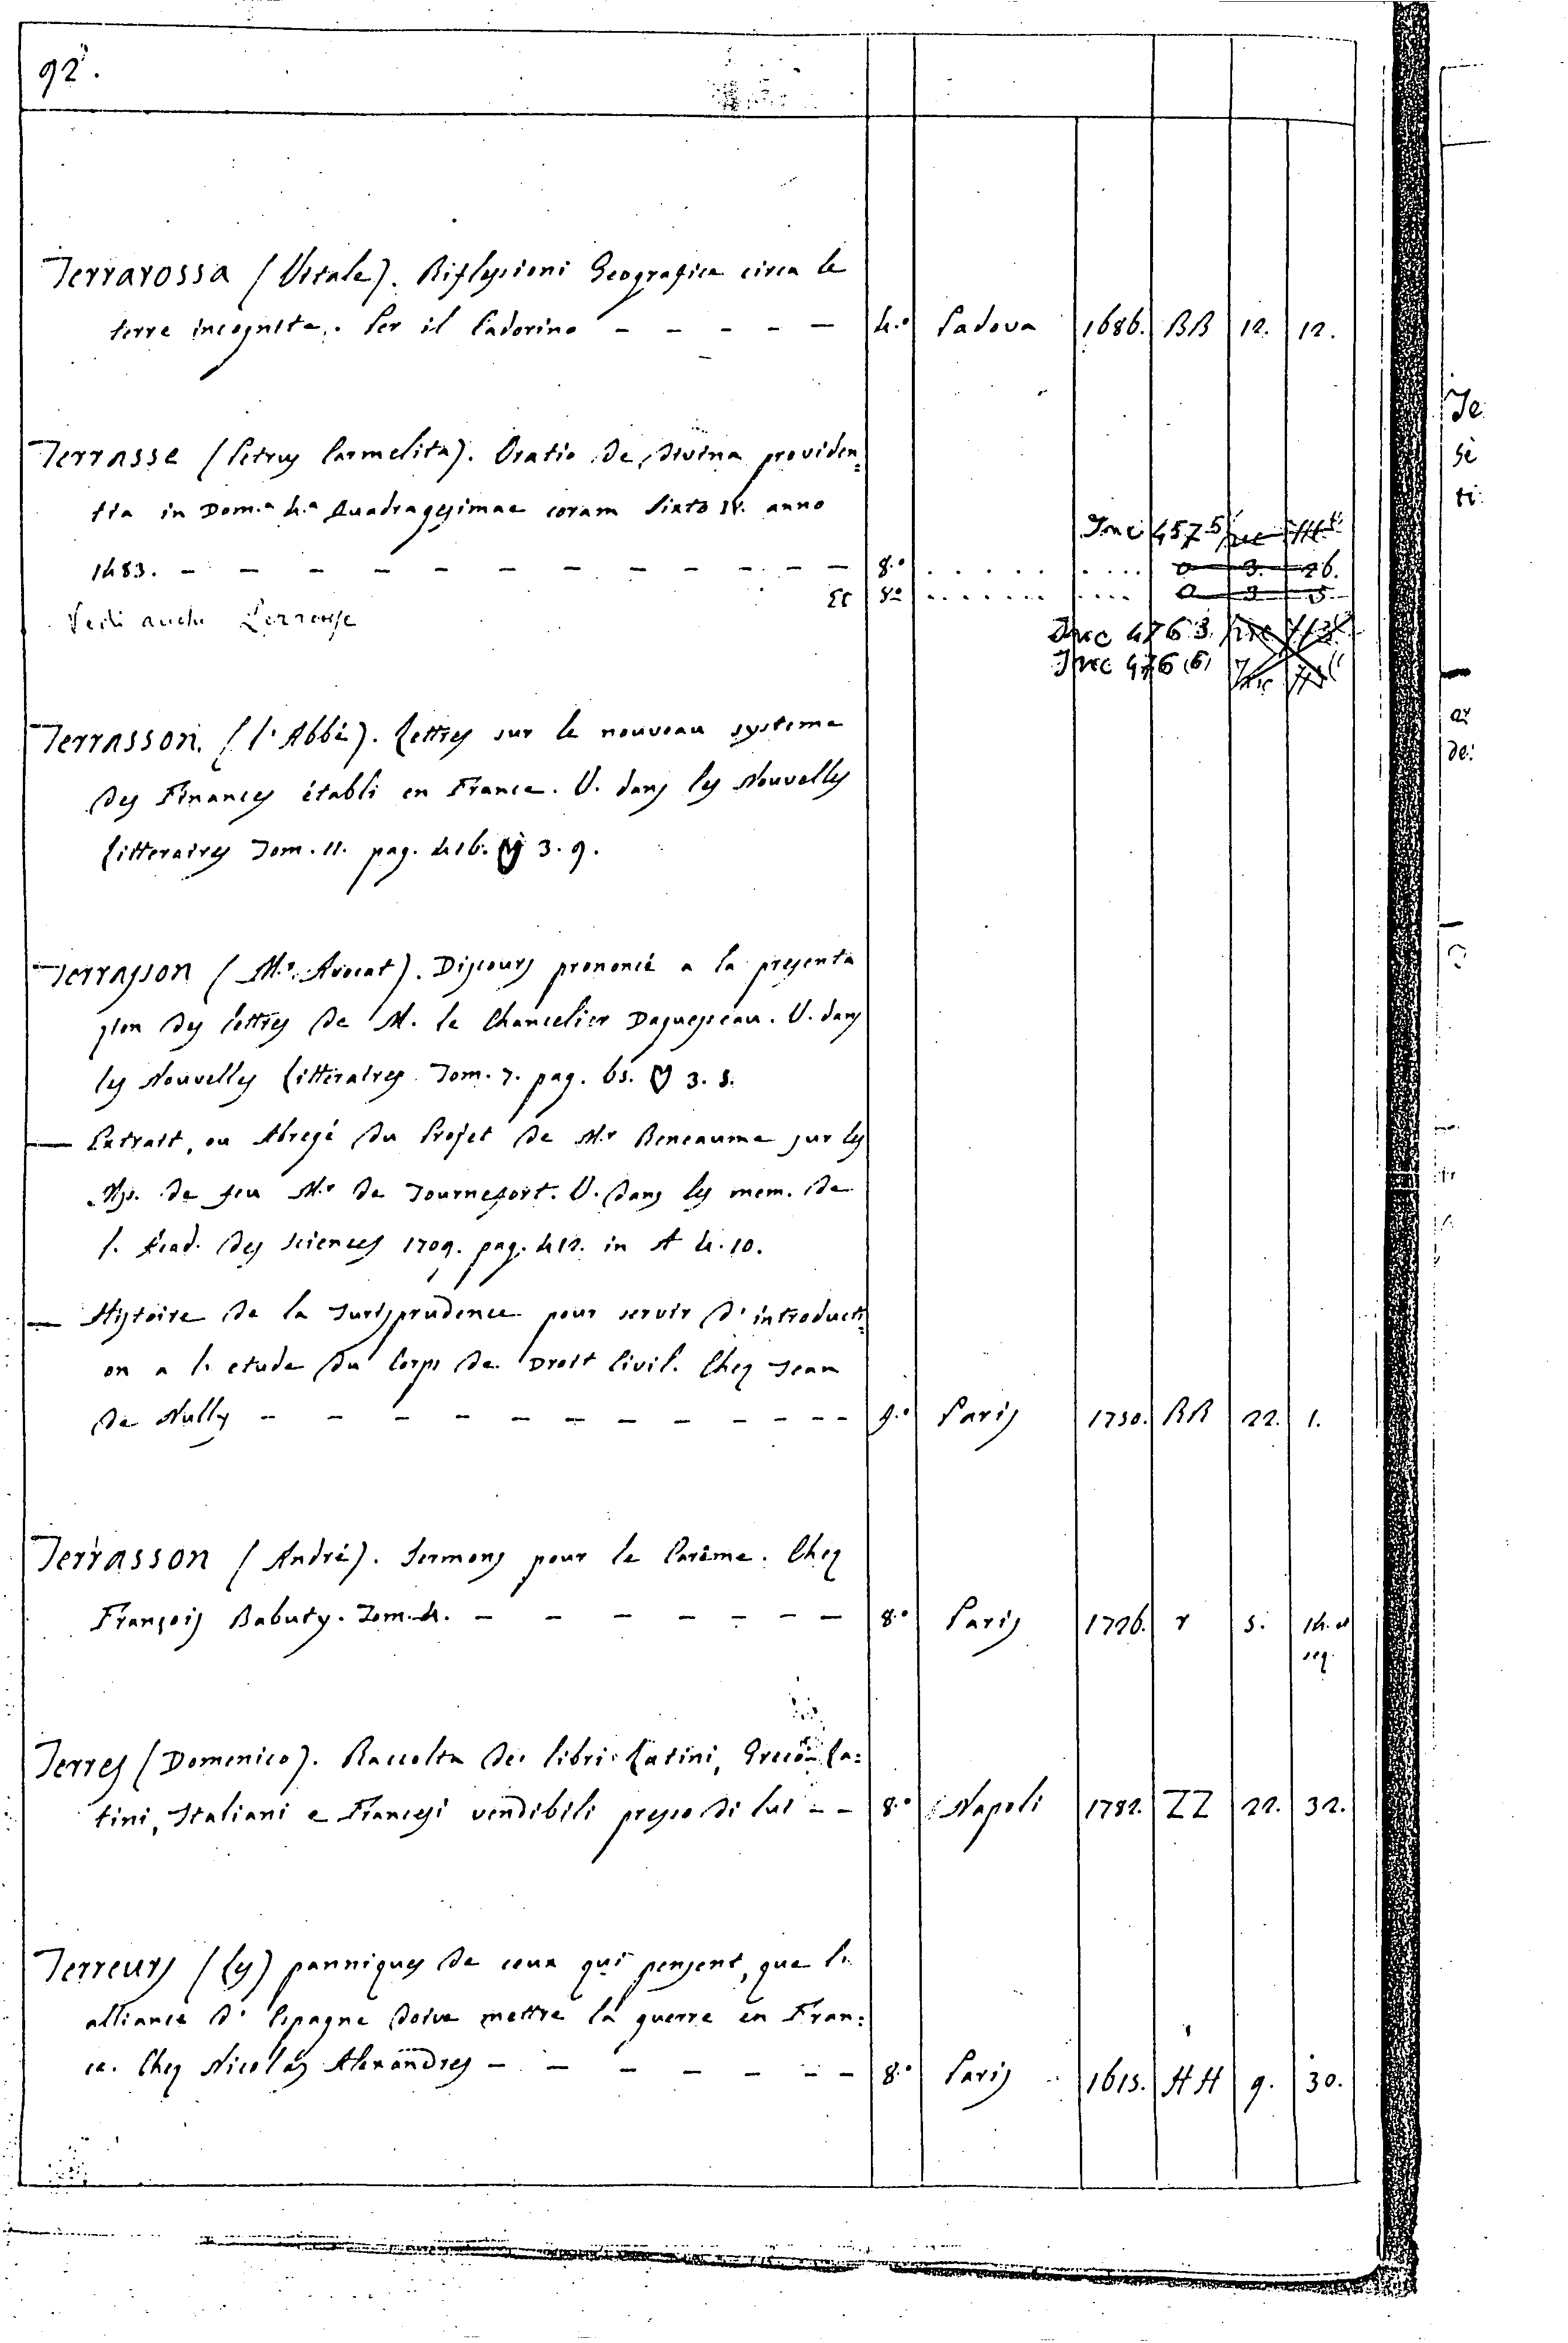 92.
Terrarossa (Vitale). Riflessioni Geografice circa le
terre incognite. Per il Cadorino - - - - - 4.o Padova 1686. BB 12. 12.
Terrasse (Petrus Carmelita). Oratio de divina providen=
tia in Dom.a 4.a Quadragesimae coram Sixto IV. anno
Inc 457 5
1483. - - - - - - - - - - - 8.o . . . . . . . . . a 3. 26.
Et 8o . . . . . . . . . . a 3 5.
Vedi anche
Inc 476 3.
Inc 476 (6)
Terrasson. (l' Abbé). Lettres sur le nouveau systeme
des Finances établi en France. V. dans les Nouvelles
Litteraires Tom. 11. pag. 416. 3. 9.
Terrasson (M.r Avocat). Discours prononcé a la presenta
sion des lettres de M. le Chancelier Daguesseau. V. dans
les Nouvelles Litteraires Tom. 7. pag. 65. ♡ 3. 5.
— Extrait, ou Abregé du Projet de M.r Reneaume sur les
Mss. de feu M.r de Tournefort. V. dans les mem. de
l. Acad. des Sciences 1709. pag. 412. in A 4. 10.
— Histoire de la Jurisprudence pour servir d' introducti=
on a l. etude du Corps de Droit Civil. Chez Jean
de Nully - - - - - - - - - - - g.o Paris 1750. BB 22. 1.
Terrasson (André). Sermons pour le Carême. Chez
François Babuty. Tom. 4. - - - - - - - 8.o Paris 1726. r 5. 14. et
seq.
Terres (Domenico). Raccolta dei libri Latini, Greco-La=
tini, Italiani e Francesi vendibili presso di lui - - 8.o Napoli 1782. ZZ 22. 32.
Terreurs (les) panniques de ceux qui pensent, que l.
alliance d' Espagne doive mettre la guerre en Fran=
ce. Chez Nicolas Alexandres - - - - - - - 8.o Paris 1615. HH 9. 30.